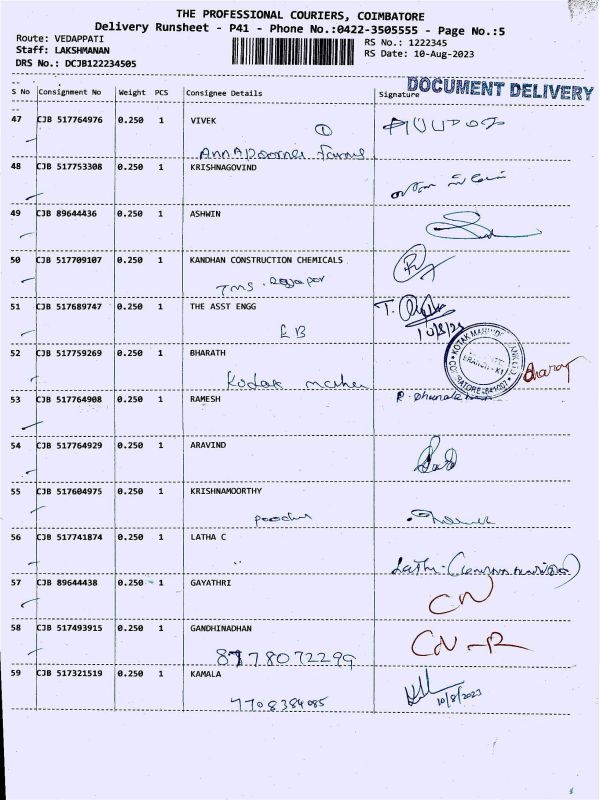 THE PROFESSIONAL COURIERS, COIMBATORE
Delivery Runsheet - P41 - Phone No.:0422-3505555 - Page No.:5
Route: VEDAPPATI
RS No.: 1222345
Staff: LAKSHMANAN
RS Date: 10-Aug-2023
DRS No.: DCJB122234505
DOCUMENT DELIVERY
S No Consignment No Weight PCS Consignee Details Signature
47 CJB 517764976 0.250 1 VIVEK
1
Annapoorna Farms
48 CJB 517753308 0.250 1 KRISHNAGOVIND
49 CJB 89644436 0.250 1 ASHWIN
50 CJB 517709107 0.250 1 KANDHAN CONSTRUCTION CHEMICALS
TMS
51 CJB 517689747 0.250 1 THE ASST ENGG
EB
10/8/23
52 CJB 517759269 0.250 1 BHARATH
Kodak
53 CJB 517764908 0.250 1 RAMESH
54 CJB 517764929 0.250 1 ARAVIND
55 CJB 517604975 0.250 1 KRISHNAMOORTHY
56 CJB 517741874 0.250 1 LATHA C
57 CJB 89644438 0.250 1 GAYATHRI
CN
58 CJB 517493915 0.250 1 GANDHINADHAN
CN-R
8778072299
59 CJB 517321519 0.250 1 KAMALA
7708384085
10/8/2023